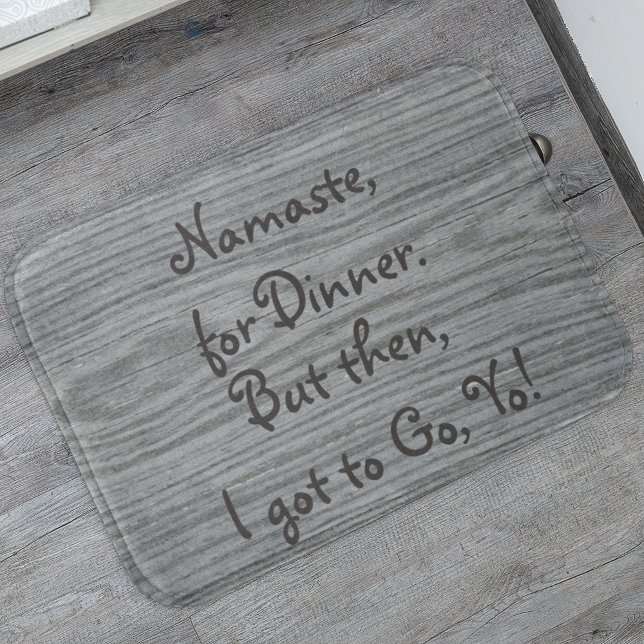 Namaste,
for Dinner.
But then,
I got to Go, Yo!